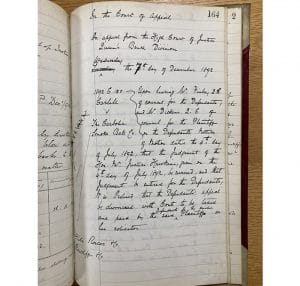 164
2
In the Court of Appeal
In appeal from the High Court of Justice
Queen's Bench Division
Wednesday
the 7th day of December 1892
1892 C. No.
Upon hearing Mr. Finlay Q.C.
Carlill
of counsel for the Defendants
v
and Mr. Dickens Q.C. of
The Carbolic
counsel for the Plaintiff
Smoke Ball Co.
on the Defendants Notice
of Motion dated the
day
of July 1892, that the judgment of the
Hon. Mr. Justice Hawkins given on the
day of July 1892, be reversed, and that
Judgment be entered for the Defendants,
It is Ordered that the Defendants appeal
be dismissed with Costs to be taxed
and paid by the said Defendants to the Plaintiff or
her solicitor